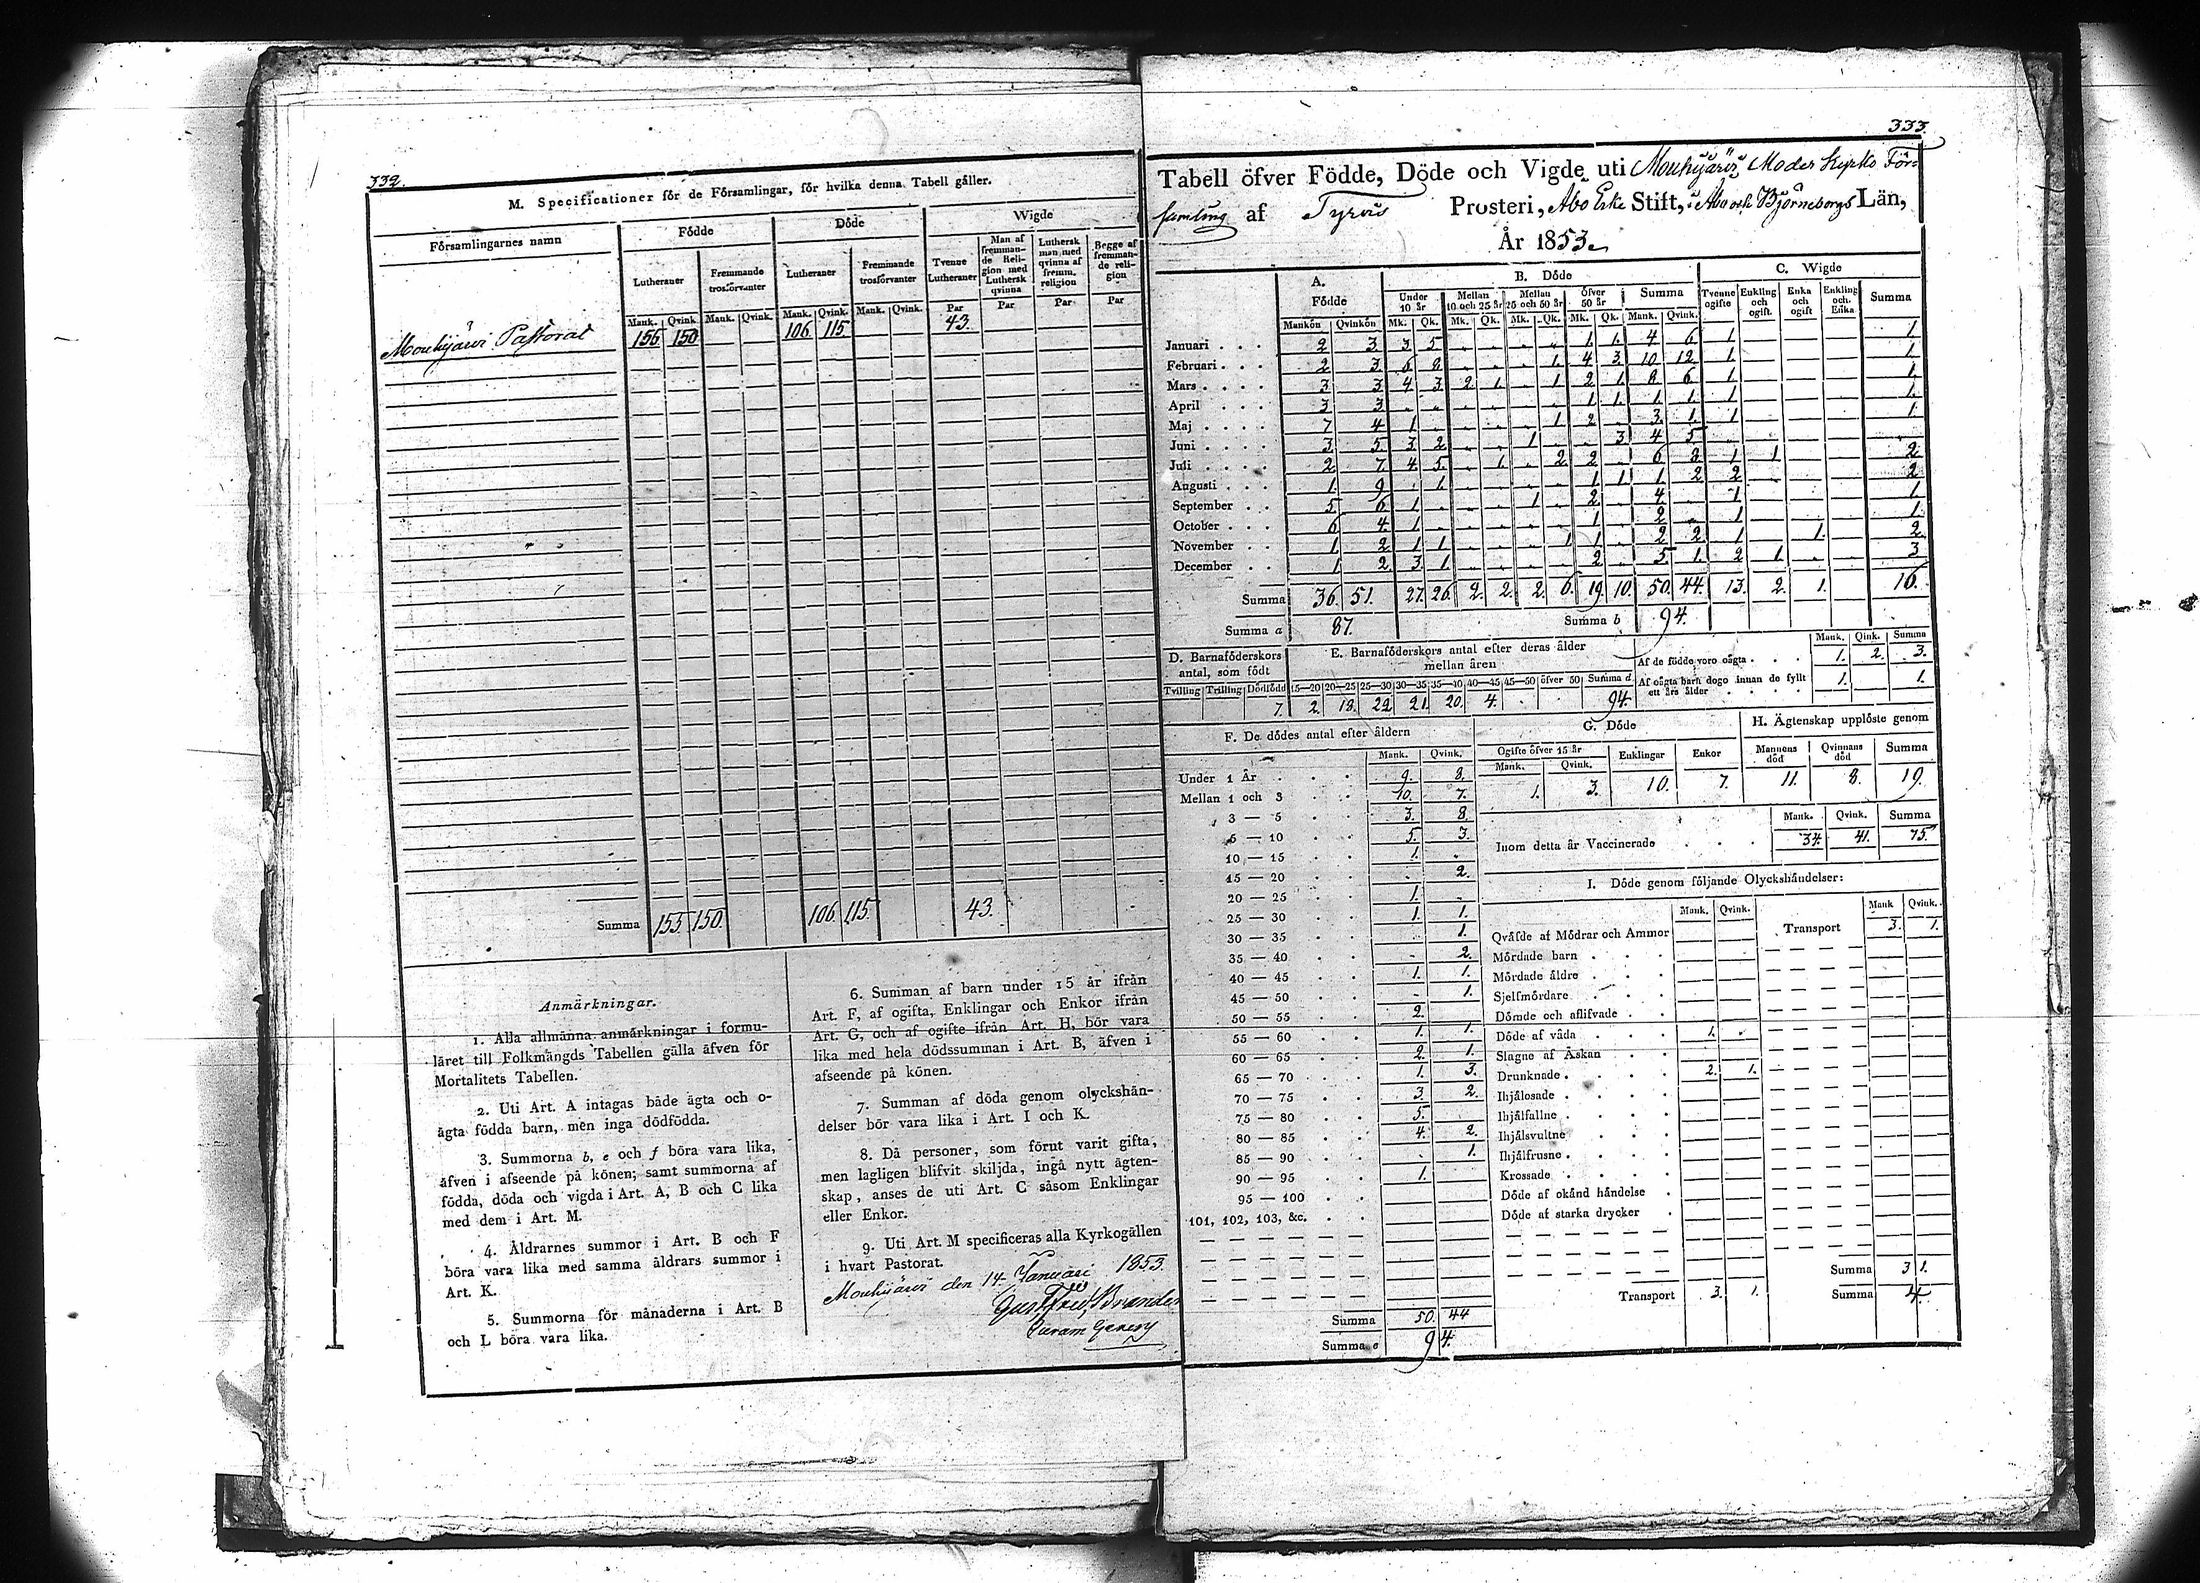 332.
M. Specificationer för de Församlingar, för hvilka denna Tabell gäller.
Församlingarnes namn Födde Döde Wigde
Lutheraner Fremmande trosförvanter Lutheraner Fremmande trosförvanter Tvenne Lutheraner Man af fremmande Religion med Luthersk qvinna Luthersk man med qvinna af fremm. religion Begge af fremmande religion
Mank. Qvink. Mank. Qvink. Mank. Qvink. Mank. Qvink. Par Par Par Par
Mouhijärvi Pastorat 156 150 106. 115 43.
Summa 155. 150. 106. 115. 43.
Anmärkningar.
1. Alla allmänna anmärkningar i formu-
läret till Folkmängds Tabellen gälla äfven för
Mortalitets Tabellen.
2. Uti Art. A intagas både ägta och o-
ägta födda barn, men inga dödfödda.
3. Summorna b, e och f böra vara lika,
äfven i afseende på könen; samt summorna af
födda, döda och vigda i Art. A, B och C lika
med dem i Art. M.
4. Åldrarnes summor i Art. B och F
böra vara lika med samma åldrars summor i
Art. K.
5. Summorna för månaderna i Art. B
och L böra vara lika.
6. Summan af barn under 15 år ifrån
Art. F, af ogifta, Enklingar och Enkor ifrån
Art. G, och af ogifte ifrån Art. H, bör vara
lika med hela dödssumman i Art. B, äfven i
afseende på könen.
7. Summan af döda genom olyckshän-
delser bör vara lika i Art. I och K.
8. Då personer, som förut varit gifta,
men lagligen blifvit skiljda, ingå nytt ägten-
skap, anses de uti Art. C såsom Enklingar
eller Enkor.
9. Uti Art. M specificeras alla Kyrkogällen
i hvart Pastorat.
Mouhijärvi den 14 Januari 1853.
333.
Tabell öfver Födde, Döde och Vigde uti Mouhijärvi Moder Kyrko För-
samling af Tyrvis Prosteri, Åbo Erke Stift, i Åbo och Björneborgs Län,
År 1853.
A. Födde B. Döde C. Wigde
Under 10 år Mellan 10 och 25 år Mellan 25 och 50 år öfver 50 år Summa Tvenne ogifte Enkling och ogift. Enka och ogift Enkling och Enka Summa
Mankön Qvinkön Mk. Qk. Mk. Qk. Mk. Qk. Mk. Qk. Mank. Qvink.
Januari 2 3 3 5 1 1 4 6 1 1.
Februari 2 3 6 8 1 4 3 10 12 1 1.
Mars 3 3 4 3 2 1 1 2 1 8 6 1 1.
April 3 3 1 1 1 1 1 1.
Maj 7 4 1 1 2 3 1 1 1
Juni 3 5 3 2 1 3 4 5
Juli 2 7 4 5 1 2 2 6 8 1 1 2
Augusti 1 9 1 1 1 1 2 2 2
September 5 6 1 1 2 4 1 1
October 6 4 1 1 2 1 1.
November 1 2 1 1 1 1 2 2 1 1. 2
December 1 2 3 1 2 5 1 2 1 3
Summa 36. 51. 27. 26. 2. 2. 2. 6. 19. 10. 50. 44. 13. 2. 1. 16.
Summa a 87. Summa b 94.
D. Barnaföderskors antal, som födt E. Barnaföderskors antal efter deras ålder mellan åren
Tvilling Trilling Dödfödd 15—20 20—25 25—30 30—35 35—40 40—45 45—50 öfver 50 Summa d
7. 2. 18. 22. 21. 20. 4. 94.
Mank. Qink. Summa
Af de födde voro oägta 1. 2. 3.
Af oägta barn dogo innan de fyllt ett års ålder 1. 1.
F. De dödes antal efter åldern
Mank. Qvink.
Under 1 År 9. 8.
Mellan 1 och 3 10. 7.
3 — 5 3. 8.
5 — 10 5. 3.
10 — 15 1.
15 — 20 2.
20 — 25 1.
25 — 30 1. 1.
30 — 35 1.
35 — 40 2.
40 — 45 1. 1.
45 — 50 1.
50 — 55 2.
55 — 60 1. 1.
60 — 65 2. 1.
65 — 70 1. 3.
70 — 75 3. 2.
75 — 80 5.
80 — 85 4. 2.
85 — 90 1.
90 — 95 1.
95 — 100
101, 102, 103, &c.
Summa 50. 44
Summa e 94.
G. Döde
Ogifte öfver 15 år Enklingar Enkor
Mank. Qvink.
1. 3. 10. 7.
H. Ägtenskap upplöste genom
Mannens död Qvinnans död Summa
11. 8. 19.
Mank. Qvink. Summa
Inom detta år Vaccinerade 34. 41. 75.
I. Döde genom följande Olyckshändelser:
Mank. Qvink. Mank Qvink.
Qväfde af Mödrar och Ammor Transport 3. 1.
Mördade barn
Mördade äldre
Sjelfmördare
Dömde och aflifvade
Döde af våda 1.
Slagne af Åskan
Drunknade 2. 1.
Ihjälosade
Ihjälfallne
Ihjälsvultne
Ihjälfrusne
Krossade
Döde af okänd händelse
Döde af starka drycker
Summa 3 1.
Transport 3. 1. Summa 4.